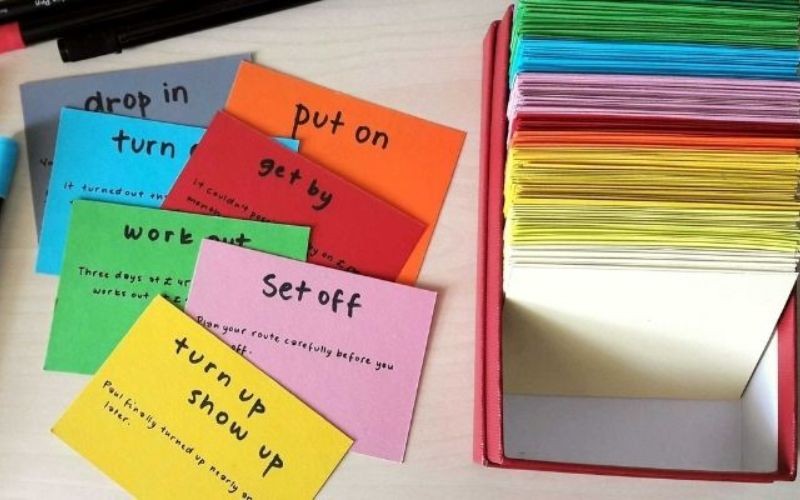 drop in
put on
turn
It turned out
get by
it couldn't
month
on £
work out
Three days at £
works out
Set off
Plan your route carefully before you
off.
turn up
show up
Paul finally turned up nearly an
later.